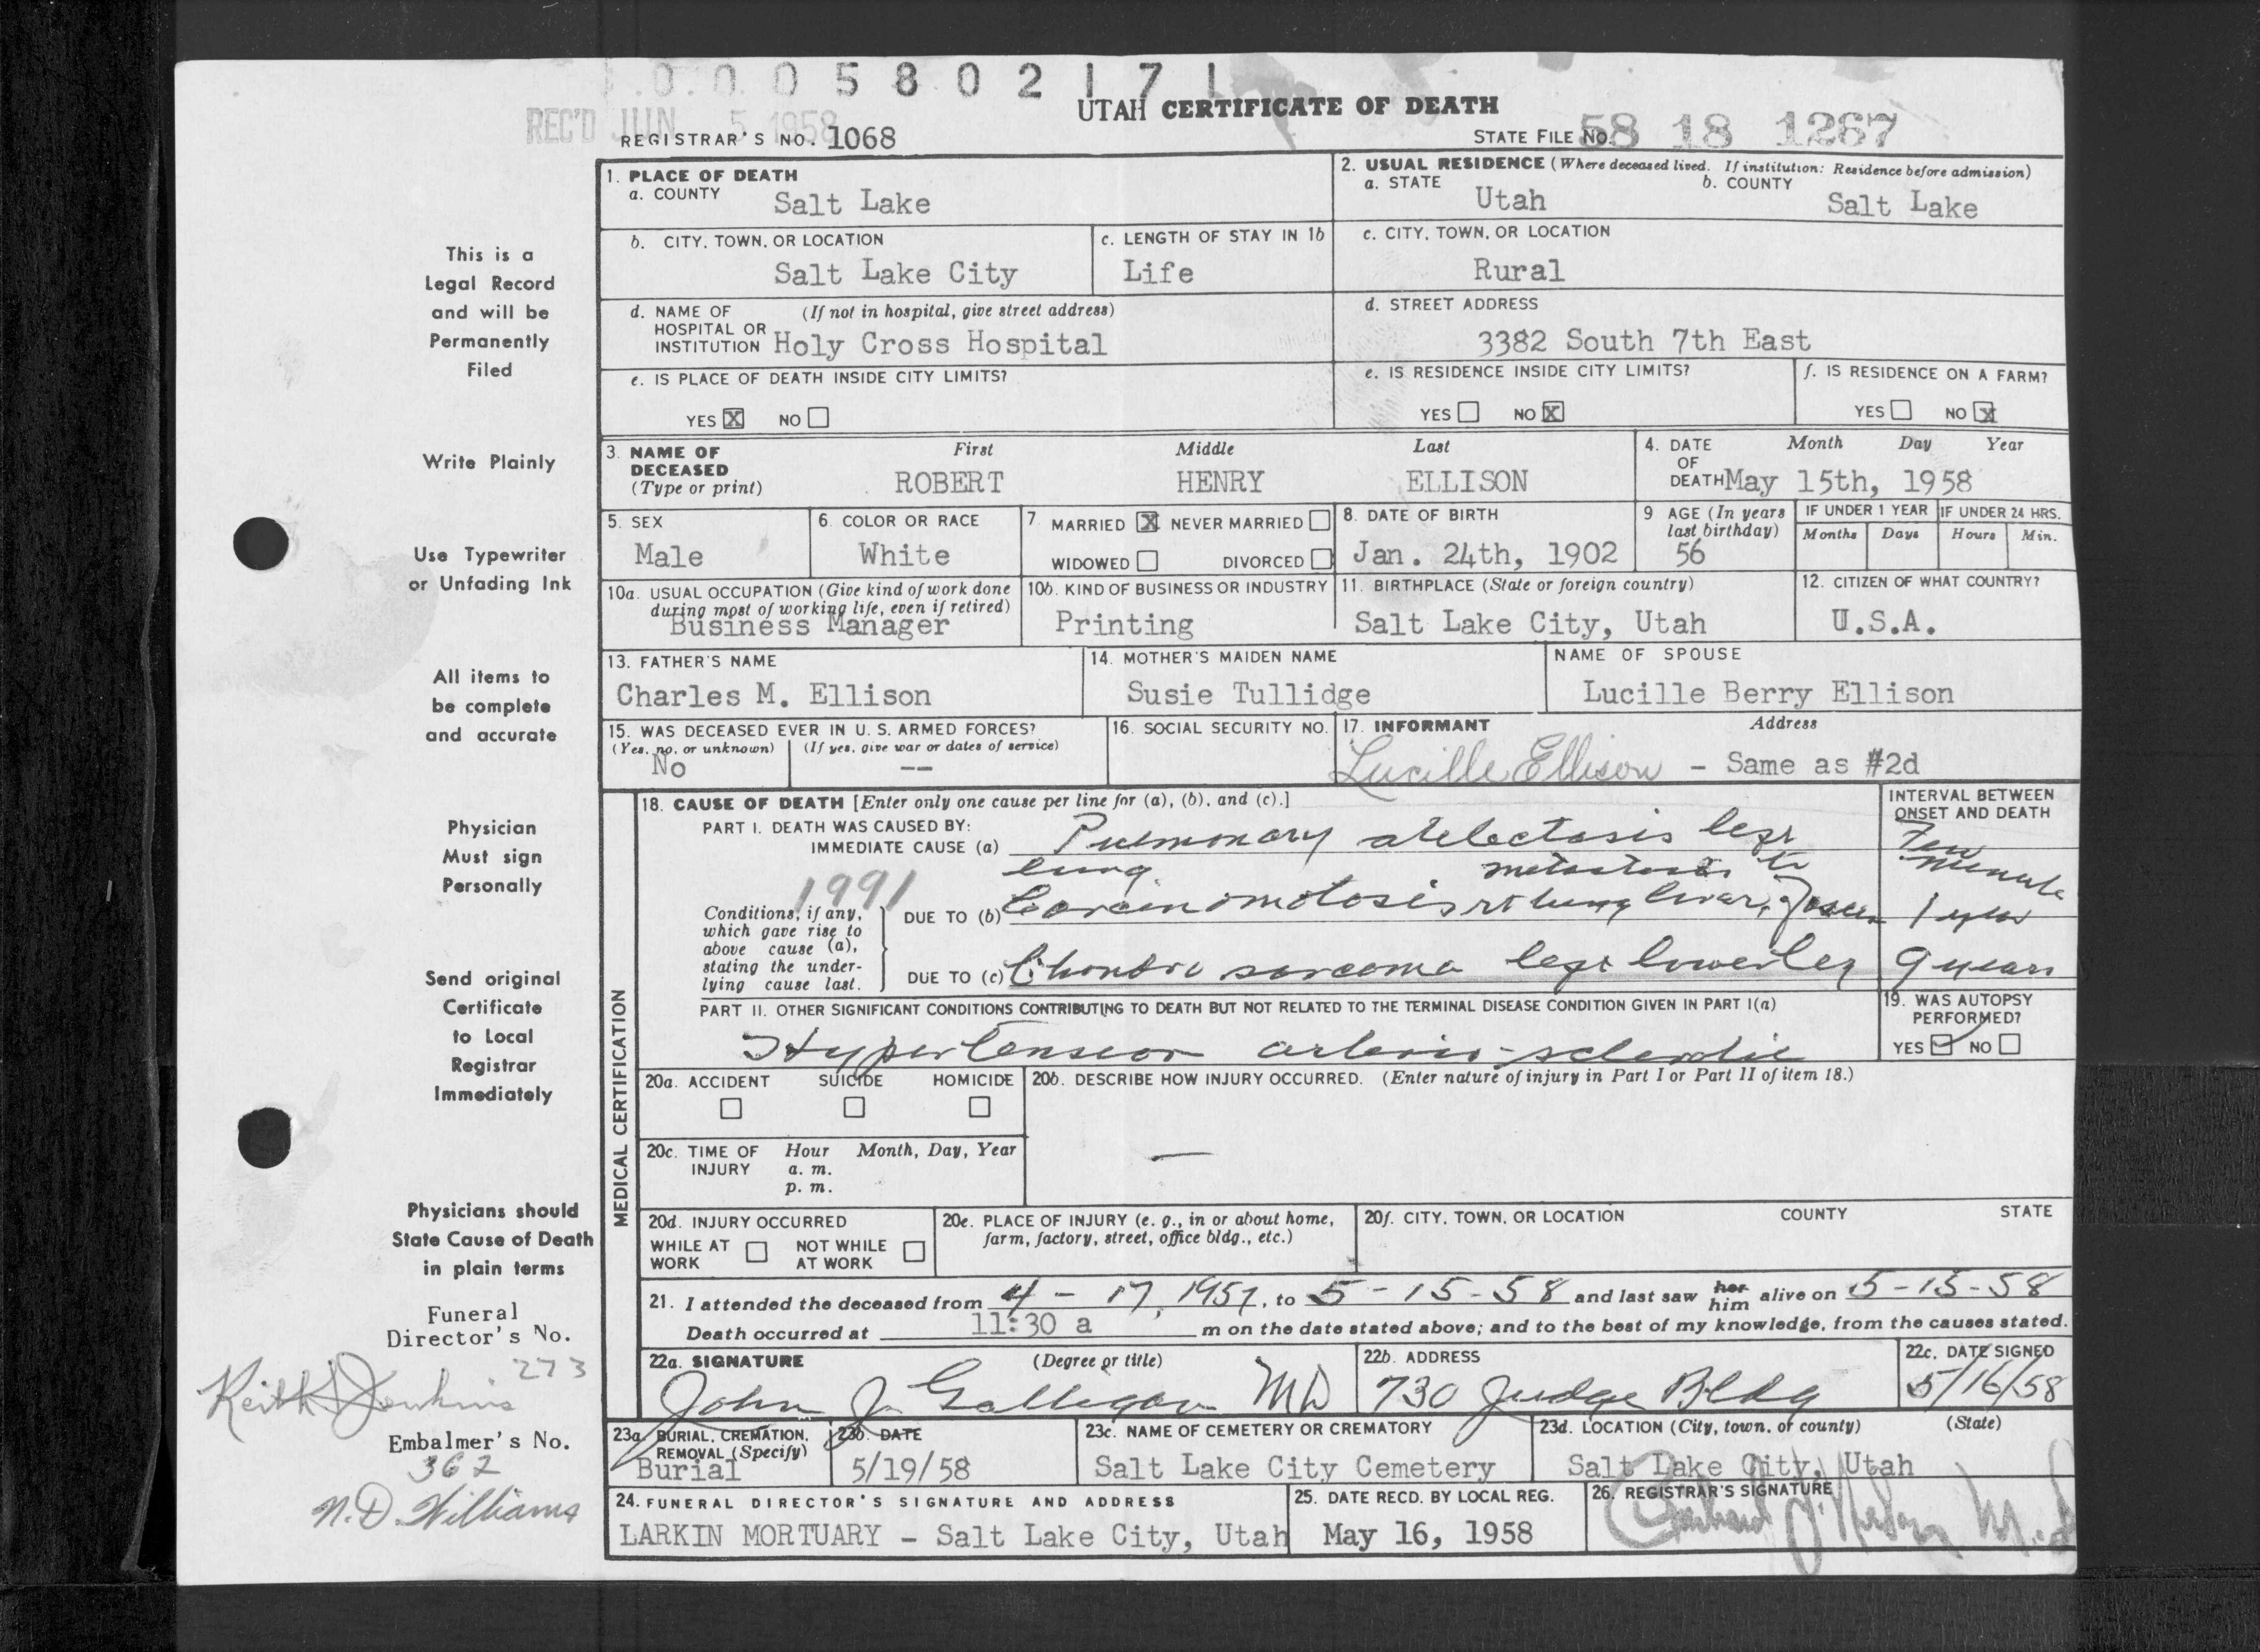 0005802171
UTAH CERTIFICATE OF DEATH
REC'D JUN 5 1958
REGISTRAR'S NO. 1068
STATE FILE NO. 58 18 1267
1. PLACE OF DEATH
a. COUNTY Salt Lake
2. USUAL RESIDENCE (Where deceased lived. If institution: Residence before admission)
a. STATE Utah b. COUNTY Salt Lake
b. CITY, TOWN, OR LOCATION Salt Lake City
c. LENGTH OF STAY IN 1b Life
c. CITY, TOWN, OR LOCATION Rural
d. NAME OF HOSPITAL OR INSTITUTION (If not in hospital, give street address) Holy Cross Hospital
d. STREET ADDRESS 3382 South 7th East
e. IS PLACE OF DEATH INSIDE CITY LIMITS?
YES X NO
e. IS RESIDENCE INSIDE CITY LIMITS?
YES NO X
f. IS RESIDENCE ON A FARM?
YES NO X
3. NAME OF DECEASED (Type or print)
First Middle Last
ROBERT HENRY ELLISON
4. DATE OF DEATH Month Day Year
May 15th, 1958
5. SEX Male
6. COLOR OR RACE White
7. MARRIED X NEVER MARRIED
WIDOWED DIVORCED
8. DATE OF BIRTH Jan. 24th, 1902
9 AGE (In years last birthday) 56
IF UNDER 1 YEAR Months Days
IF UNDER 24 HRS. Hours Min.
10a. USUAL OCCUPATION (Give kind of work done during most of working life, even if retired)
Business Manager
10b. KIND OF BUSINESS OR INDUSTRY
Printing
11. BIRTHPLACE (State or foreign country)
Salt Lake City, Utah
12. CITIZEN OF WHAT COUNTRY?
U.S.A.
13. FATHER'S NAME
Charles M. Ellison
14. MOTHER'S MAIDEN NAME
Susie Tullidge
NAME OF SPOUSE
Lucille Berry Ellison
15. WAS DECEASED EVER IN U. S. ARMED FORCES?
(Yes, no, or unknown) (If yes, give war or dates of service)
No --
16. SOCIAL SECURITY NO.
17. INFORMANT Address
Lucille Ellison - Same as #2d
MEDICAL CERTIFICATION
18. CAUSE OF DEATH [Enter only one cause per line for (a), (b), and (c).]
INTERVAL BETWEEN ONSET AND DEATH
PART I. DEATH WAS CAUSED BY:
IMMEDIATE CAUSE (a) Pulmonary atelectasis
lung
Few minute
1991
Conditions, if any, which gave rise to above cause (a), stating the underlying cause last.
metastasis to
DUE TO (b) Carcinomatosis rt lung liver, 1 year
DUE TO (c) Chondro sarcoma lower leg 9 years
PART II. OTHER SIGNIFICANT CONDITIONS CONTRIBUTING TO DEATH BUT NOT RELATED TO THE TERMINAL DISEASE CONDITION GIVEN IN PART I(a)
Hypertension arterio-sclerotic
19. WAS AUTOPSY PERFORMED?
YES NO
20a. ACCIDENT SUICIDE HOMICIDE
20b. DESCRIBE HOW INJURY OCCURRED. (Enter nature of injury in Part I or Part II of item 18.)
20c. TIME OF INJURY Hour Month, Day, Year
a. m.
p. m.
20d. INJURY OCCURRED
WHILE AT WORK NOT WHILE AT WORK
20e. PLACE OF INJURY (e. g., in or about home, farm, factory, street, office bldg., etc.)
20f. CITY, TOWN, OR LOCATION COUNTY STATE
21. I attended the deceased from 4 - 17, 1957, to 5-15-58 and last saw her him alive on 5-15-58
Death occurred at 11:30 a m on the date stated above; and to the best of my knowledge, from the causes stated.
22a. SIGNATURE (Degree or title)
John J. Galligan MD
22b. ADDRESS
730 Judge Bldg
22c. DATE SIGNED
5/16/58
23a. BURIAL, CREMATION, REMOVAL (Specify)
Burial
23b. DATE
5/19/58
23c. NAME OF CEMETERY OR CREMATORY
Salt Lake City Cemetery
23d. LOCATION (City, town, or county) (State)
Salt Lake City, Utah
24. FUNERAL DIRECTOR'S SIGNATURE AND ADDRESS
LARKIN MORTUARY - Salt Lake City, Utah
25. DATE RECD. BY LOCAL REG.
May 16, 1958
26. REGISTRAR'S SIGNATURE
This is a
Legal Record
and will be
Permanently
Filed
Write Plainly
Use Typewriter
or Unfading Ink
All items to
be complete
and accurate
Physician
Must sign
Personally
Send original
Certificate
to Local
Registrar
Immediately
Physicians should
State Cause of Death
in plain terms
Funeral
Director's No.
273
Keith Jenkins
Embalmer's No.
362
N.D. Williams